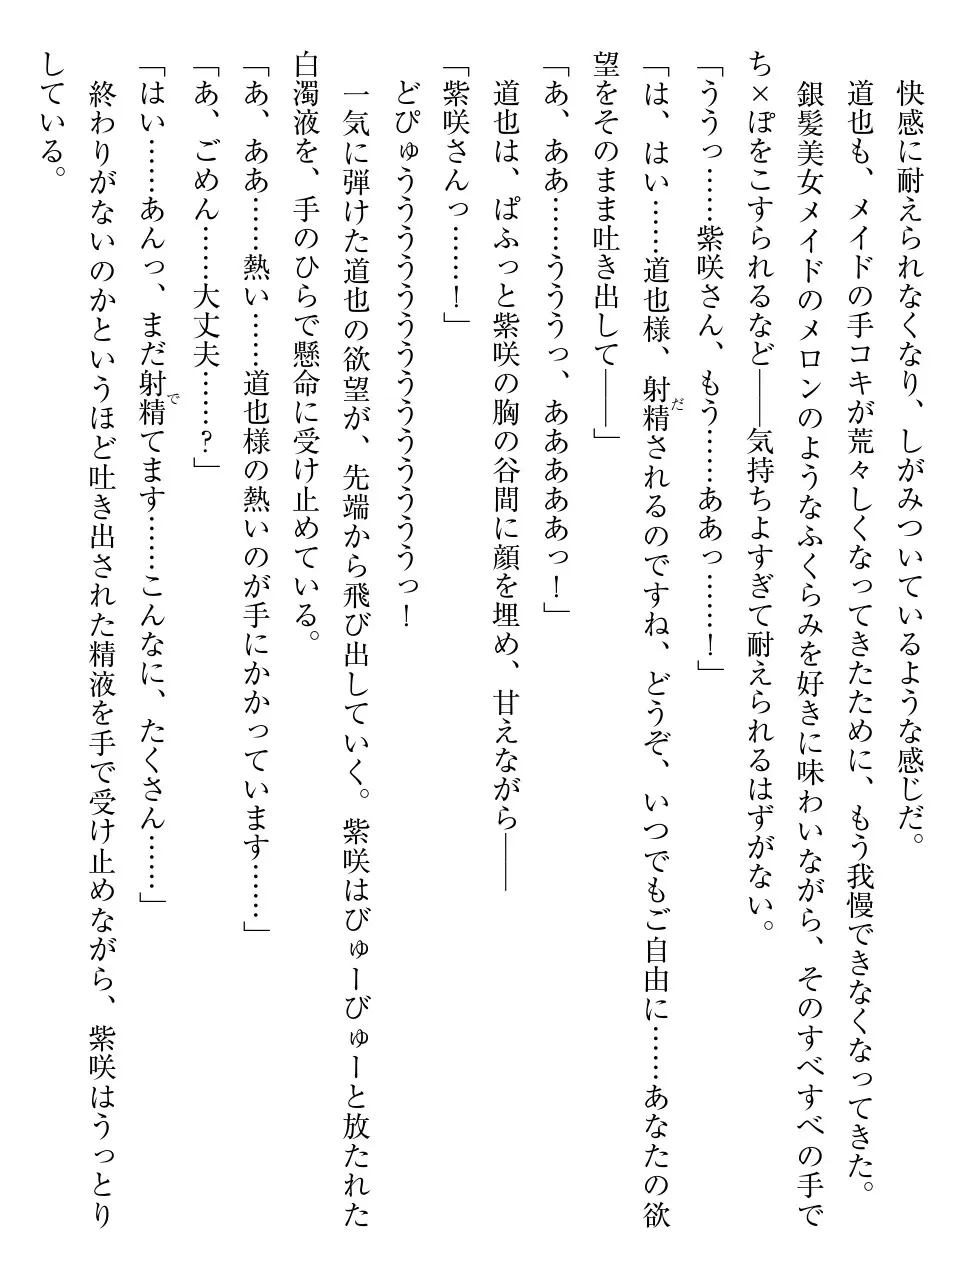 快感に耐えられなくなり、しがみついているような感じだ。
道也も、メイドの手コキが荒々しくなってきたために、もう我慢できなくなってきた。
銀髪美女メイドのメロンのようなふくらみを好きに味わいながら、そのすべすべの手で
ち×ぽをこすられるなど――気持ちよすぎて耐えられるはずがない。
「ううっ……紫咲さん、もう……ああっ……！」
「は、はい……道也様、射精されるのですね、どうぞ、いつでもご自由に……あなたの欲
だ
望をそのまま吐き出して――」
「あ、ああ……ううっ、あああああっ！」
道也は、ぱふっと紫咲の胸の谷間に顔を埋め、甘えながら――
「紫咲さんっ……！」
どぴゅうううううううううううううっ！
一気に弾けた道也の欲望が、先端から飛び出していく。紫咲はびゅーびゅーと放たれた
白濁液を、手のひらで懸命に受け止めている。
「あ、ああ……熱い……道也様の熱いのが手にかかっています……」
「あ、ごめん……大丈夫……？」
「はい……あんっ、まだ射精てます……こんなに、たくさん……」
で
終わりがないのかというほど吐き出された精液を手で受け止めながら、紫咲はうっとり
している。